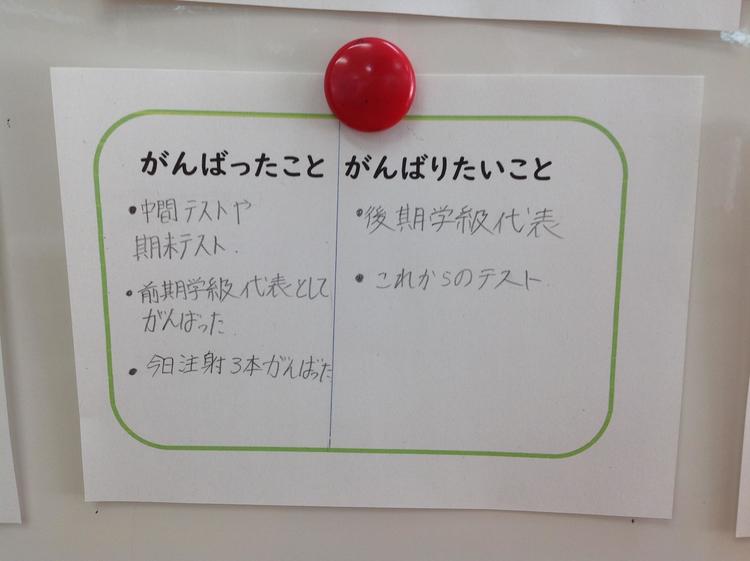 がんばったこと
・中間テストや
期末テスト.
・前期学級代表として
がんばった.
・今日注射3本がんばった
がんばりたいこと
・後期学級代表
・これからのテスト